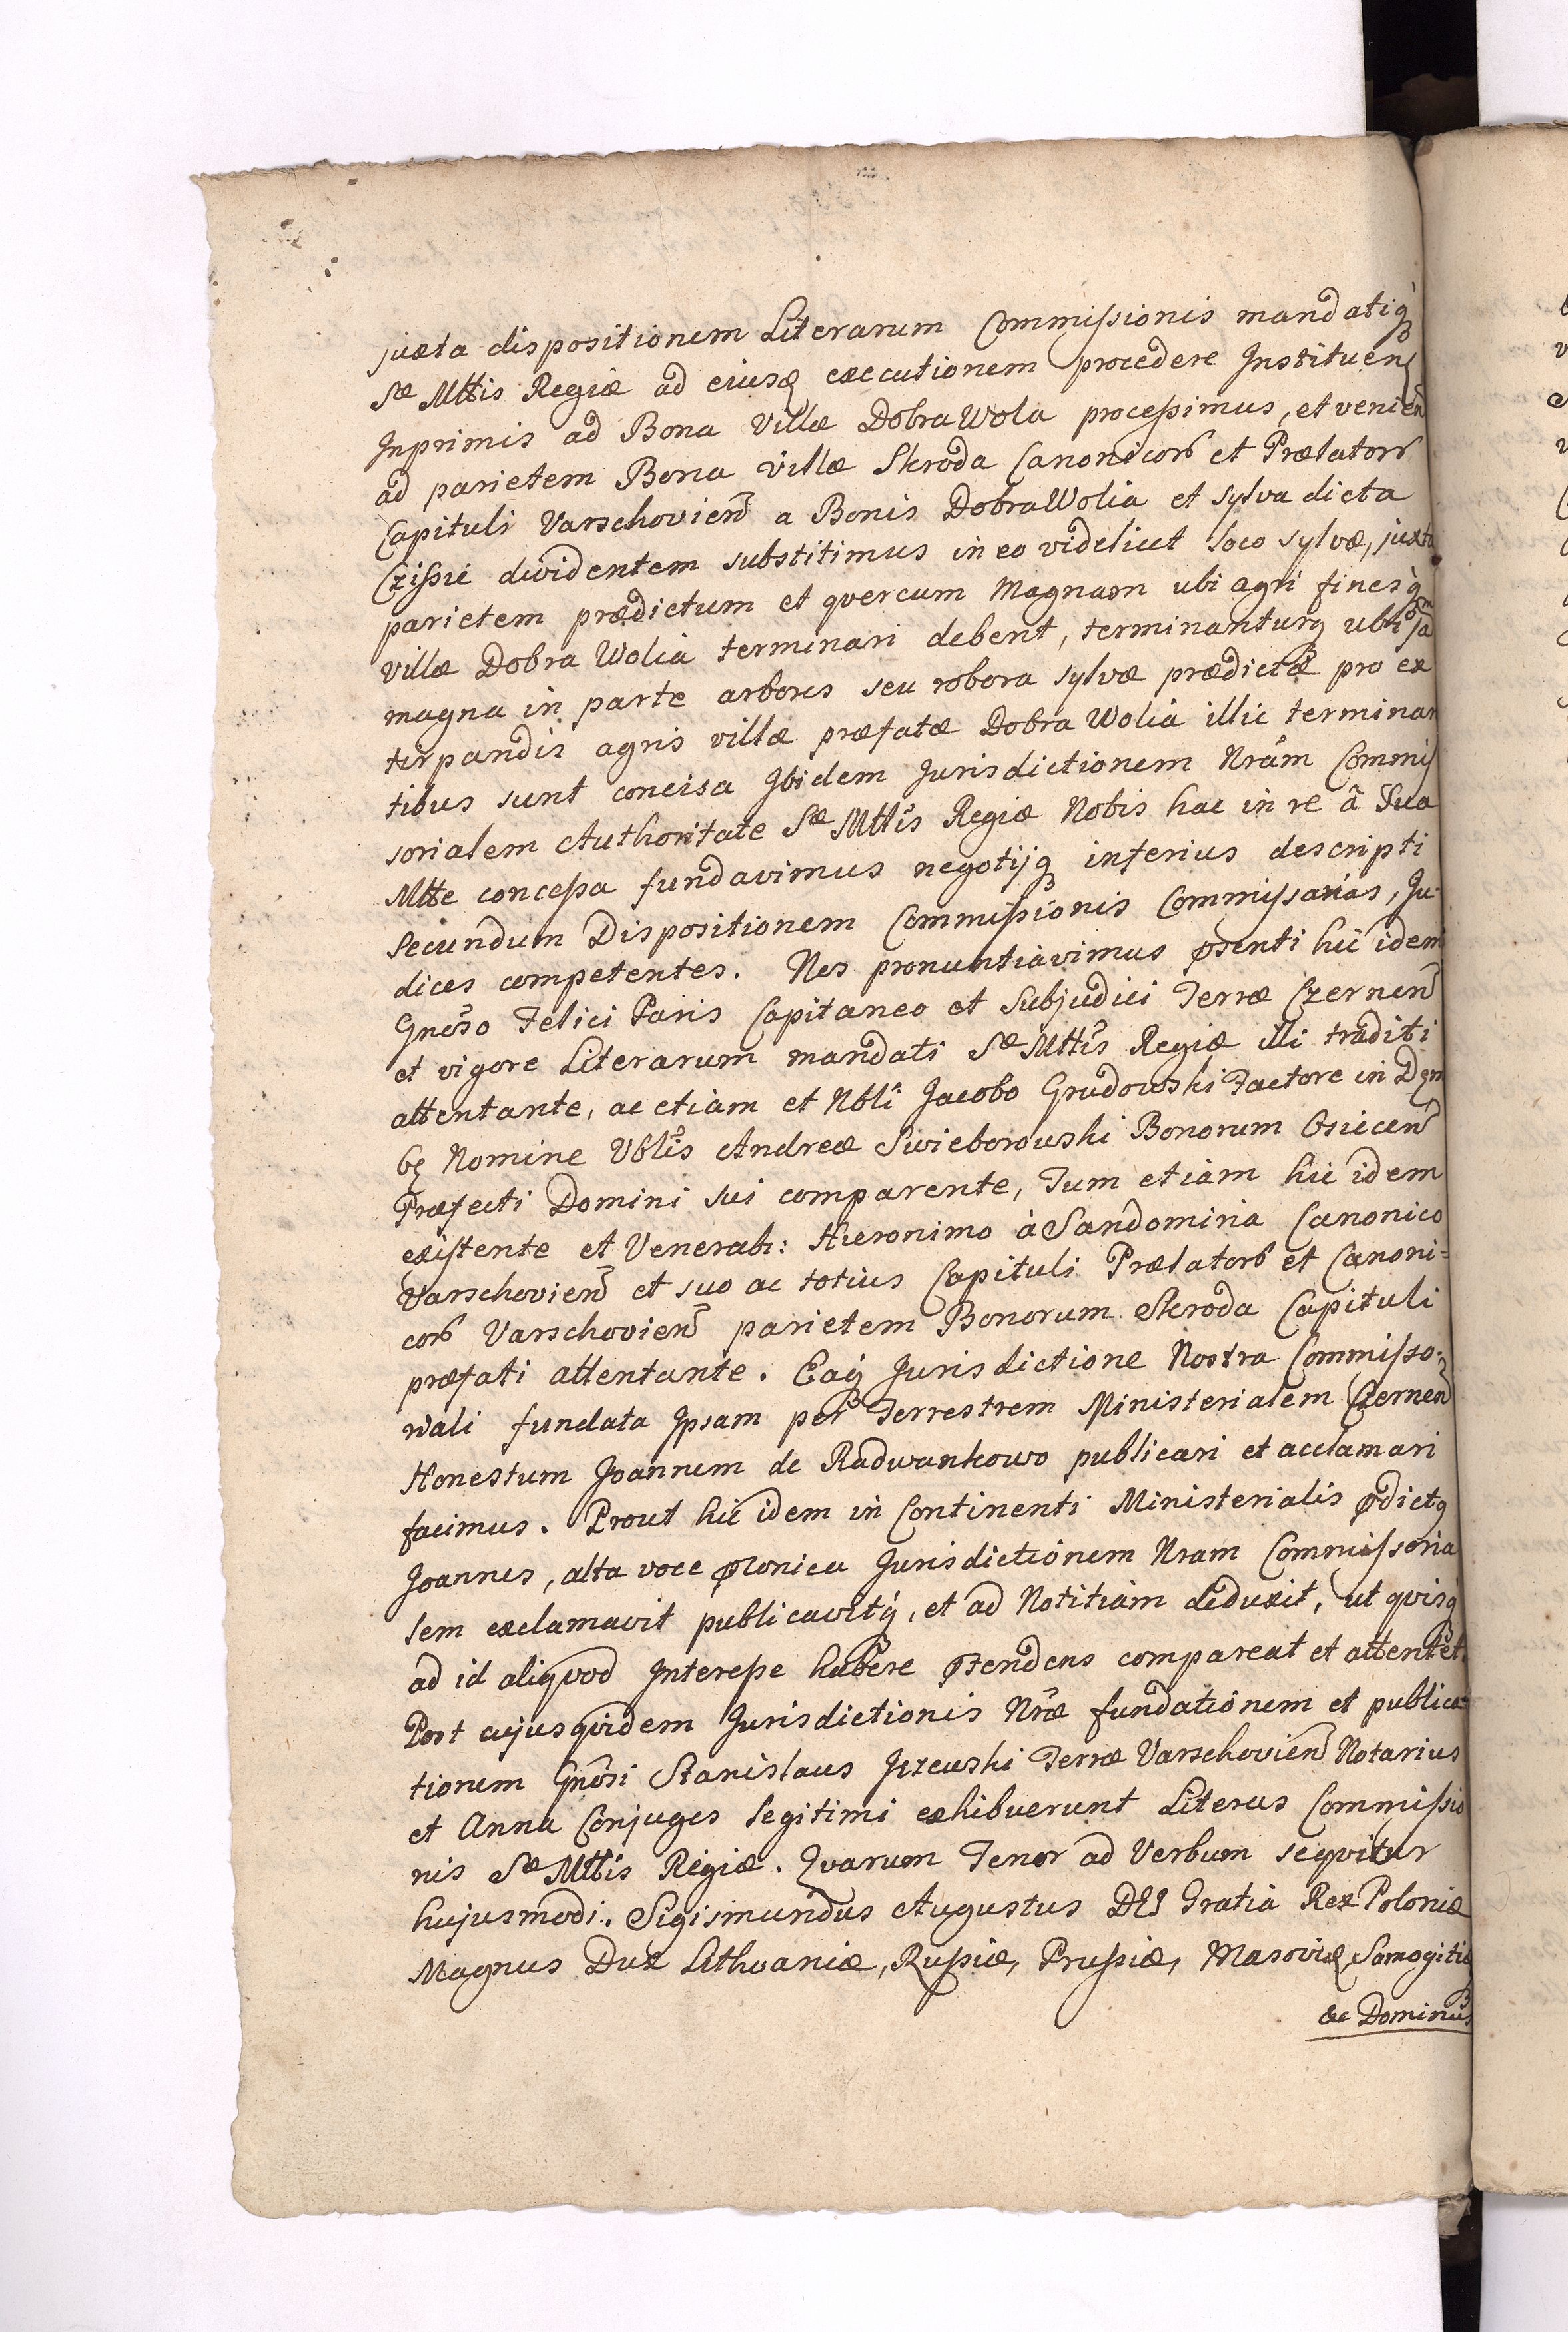 juxta dispositionem Literarum Commissionis mandatiq́
Sæ Mttis Regiæ ad eiusq executionem procedere Instituen̄
Inprimis ad Bona Villæ Dobra Wola processimus, et venien̄
ad parietem Bona villæ Skroda Canonicorb et Prælatorb
Capituli Varschovien̄ a Bonis Dobra Wolia et sylva dicta
Czissie dividentem substitimus in eo videlicet loco sylvæ, juxta
parietem prædictum et qvercum Magnam ubi agri finesq́
villæ Dobra Wolia terminari debent, terminanturq ubi jam
magna in parte arbores seu robora sylvæ prædictæ pro ex
tirpandis agris villæ præfatæ Dobra Wolia illic terminan
tibus sunt concisa Ibidem Jurisdictionem Nrãm Commis
sorialem Authoritate Sæ Mttis Regiæ Nobis hac in re â Sua
Mtte concessa fundavimus negotijq inferius descripti
Secundum Dispositionem Commissionis Commissarios, Ju-
dices competentes. Nos pronuntiavimus pꝛsenti hic idem
Gnõso Felici Paris Capitaneo et Subjudici Terræ Czernen̄
et vigore Literarum mandati Sæ Mttis Regiæ illi traditi
attentante, ac etiam et Nbli Jacobo Grudowski Factore in Dem
be Nomine Vblis Andreæ Swieborowski Bonorum Osiecen̄
Præfecti Domini sui comparente, Tum etiam hic idem
existente et Venerab: Hieronimo à Sandomiria Canonico
Varschovien̄ et suo ac totius Capituli Prælatorb et Canoni=
corb Varschovien̄ parietem Bonorum Skroda Capituli
præfati attentante. Eaq́ Jurisdictione Nostra Commisso-
riali fundata Ipsam per Terrestrem Ministerialem Czernen̄
Honestum Joannem de Radwankowo publicari et acclamari
facimus. Prout hic idem in Continenti Ministerialis pꝛdictq
Joannes, alta voce pꝛlonica Jurisdictionem Nram Commissoria
lem exclamavit publicavitq́, et ad Notitiam deduxit, ut qvisq́
ad id aliqvod Interesse habere pꝛtendens compareat et attentet.
Post cujusqvidem Jurisdictionis Nræ fundationem et publica-
tionem Gnõsi Stanislaus Jezewski Terræ Varschovien̄ Notarius
et Anna Conjuges legitimi exhibuerunt Literas Commissio
nis Sæ Mttis Regiæ. Qvarum Tenor ad Verbum seqvitur
hujusmodi. Sigismundus Augustus DEI Gratia Rex Poloniæ
Magnus Dux Lithvaniæ, Russiæ, Prussiæ, Masoviæ, Samogitiæ
&c Dominus